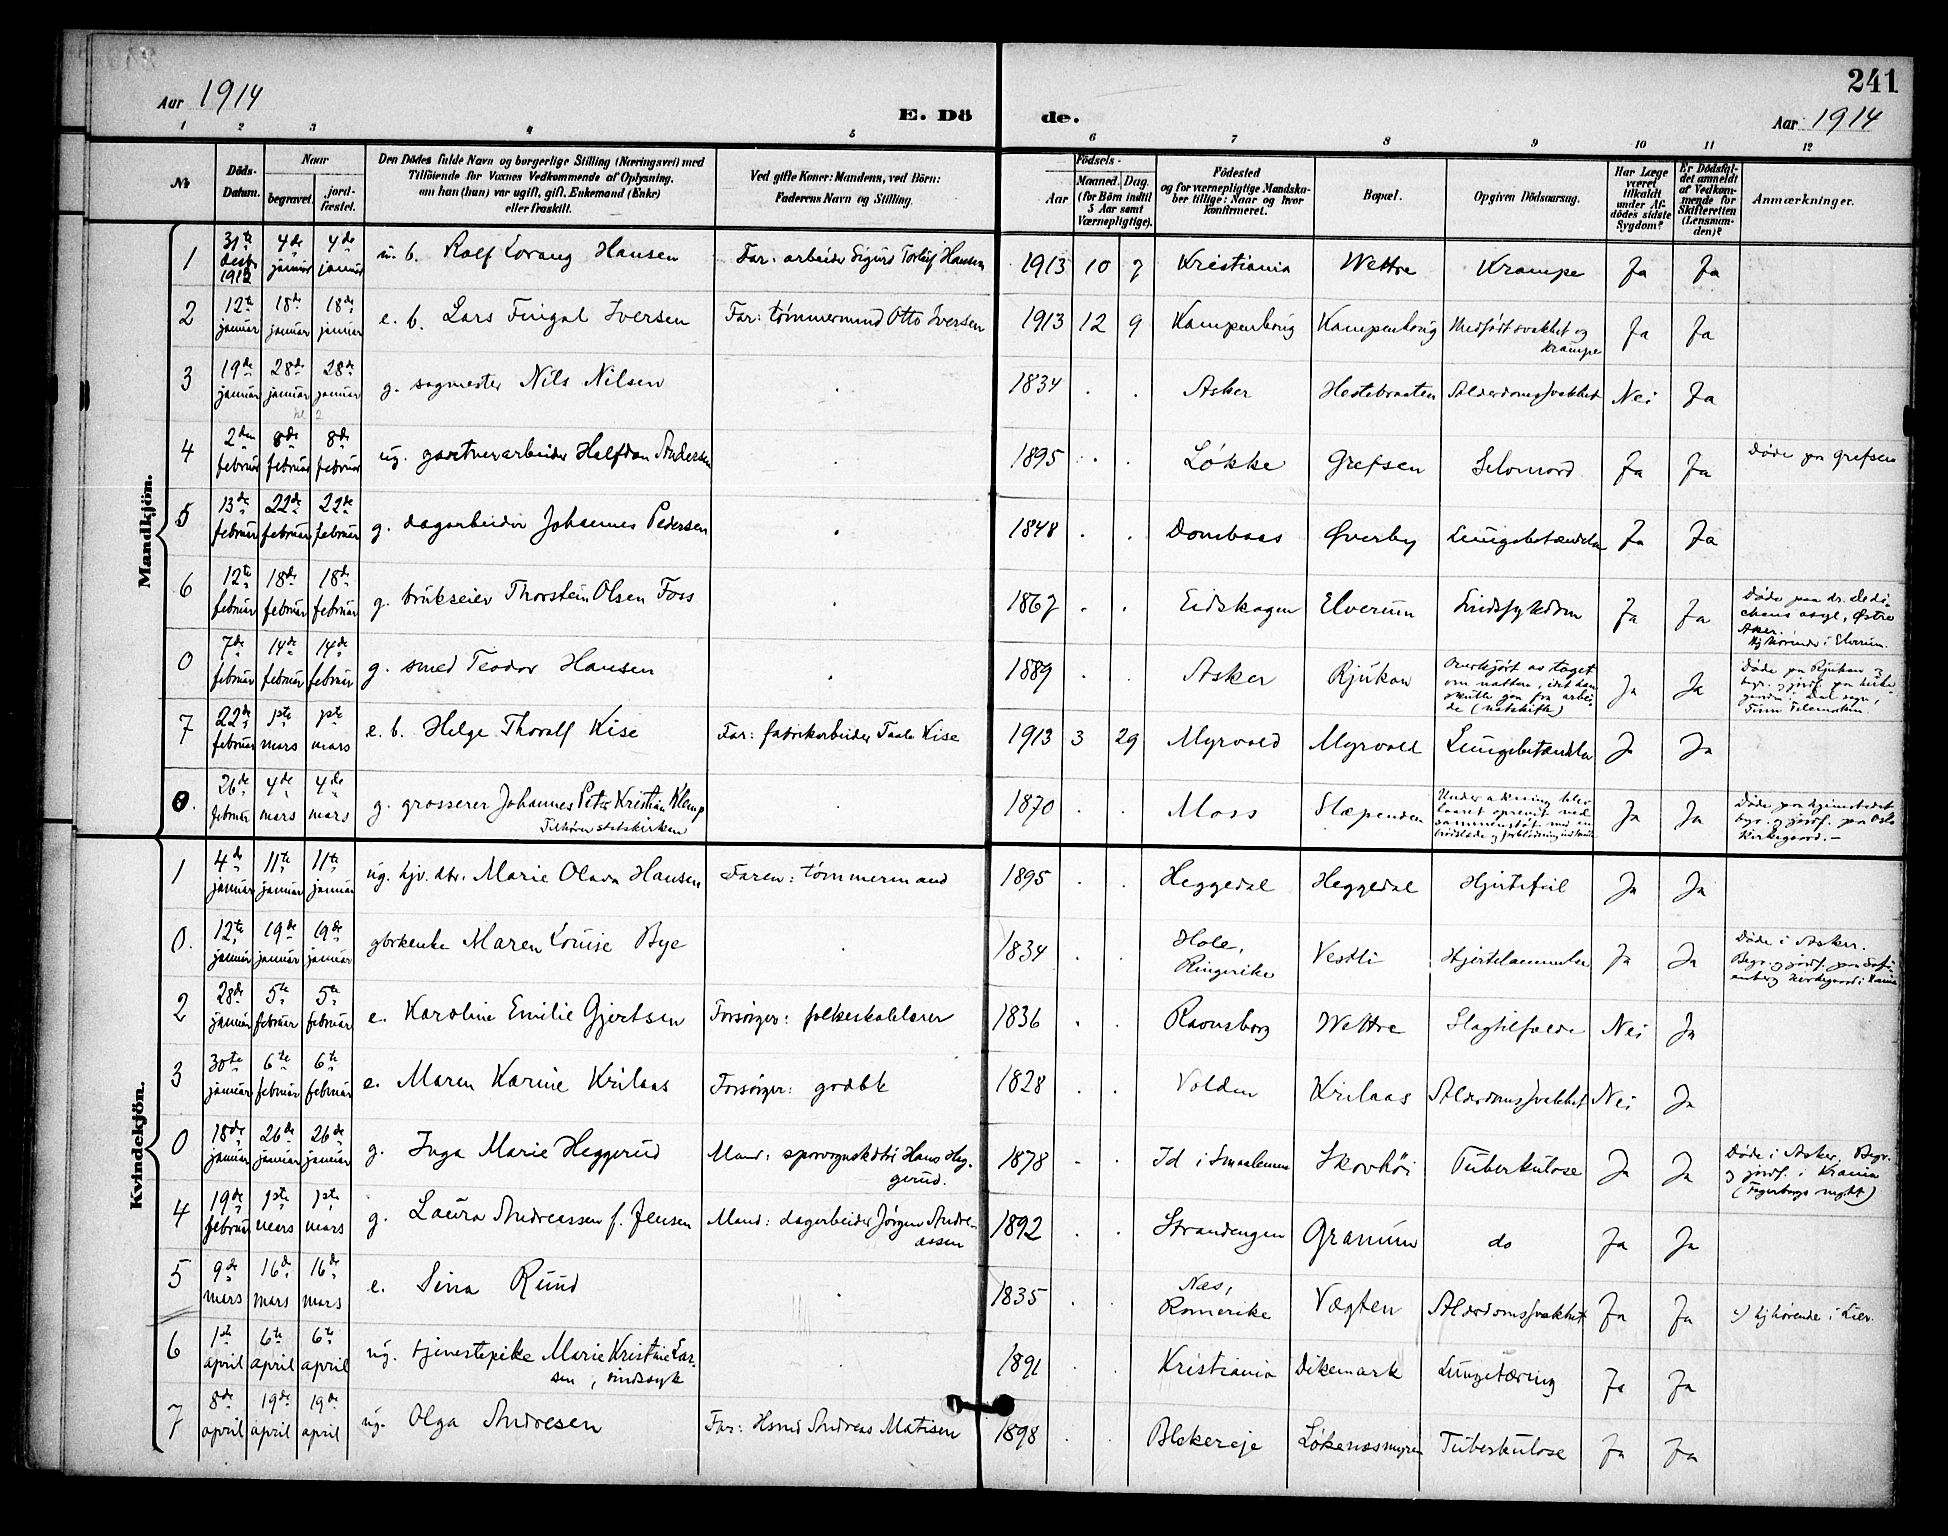 241
Aar 1914
E. Dö
de.
Aar 1914
1 2 3 4 5 6 7 8 9 10 11 12
Nr.
Döds-Datum.
Naar
begravet.
jord-fæstet.
Den Dödes fulde Navn og borgerlige Stilling (Næringsvei) med
Tilföiende for Voxnes Vedkommende af Oplysning,
om han (hun) var ugift, gift, Enkemand (Enke)
eller fraskilt.
Ved gifte Koner: Mandens, ved Börn:
Faderens Navn og Stilling.
Födsels-
Aar
Maaned. Dag.
(for Börn indtil
5 Aar samt
Værnepligtige).
Födested
og for værnepligtige Mandska-
ber tillige: Naar og hvor
konfirmeret.
Bopæl.
Opgiven Dödsaarsag.
Har Læge
været
tilkaldt
under Af-
dödes sidste
Sygdom?
Er Dödsfal-
det anmeldt
af Vedkom-
mende for
Skifteretten
(Lensman-
den)?
Anmærkninger.
Mandkjön.
1 31te desbr. 1913 4de januar 4de januar u. b. Rolf Lorang Hansen Far: arbeider Sigurd Torleif Hansen 1913 10 7 Kristiania Wettre Krampe Ja Ja
2 12te januar 18de januar 18de januar e. b. Lars Fingal Iversen Far: tømmermand Otto Iversen 1913 12 9 Kampenborg Kampenborg Medfødt svakhet og krampe Ja Ja
3 19de januar 28de januar 28de januar g. sagmester Nils Nilsen 1834 Asker Hestebraaten Alderdomssvakhet Nei Ja
4 2den februar 8de februar 8de februar ug. gartnerarbeider Halfdan Andersen 1895 Løkke Grefsen Selvmord Ja Ja Døde paa Grefsen
5 13de februar 22de februar 22de februar g. dagarbeider Johannes Pedersen 1848 Dombaas Øverby Lungebetændelse Ja Ja
6 12te februar 18de februar 18de februar g. brukseier Thorstein Olsen Foss 1867 Eidskogen Elverum Sindssykdom Ja Ja Døde paa dr. Dedi-
chens asyl, Østre
Aker.
Hjhørende i Elverum.
0 7de februar 14de februar 14de februar g. smed Teodor Hansen 1889 Asker Rjukan Overkjørt av toget
om natten, idet han
skulde gaa fra arbei-
de (natskifte) Ja Ja Døde paa Rjukan og
begr. og jordf. paa kirke-
gaarden i Dal sogn,
Tinn Telemarken.
7 22de februar 1ste mars 1ste mars e. b. Helge Thoralf Kise Far: fabrikarbeider Kise 1913 3 29 Myrvold Myrvold Lungebetændelse Ja Ja
0. 26de februar 4de mars 4de mars g. grosserer Johannes Peter Kristian Klemp
Tilhører statskirken 1870 Moss Slæpenden Under akning blev
sammenstøt med en Ja Ja Døde paa hjemstedet
begr. og jordf. paa Oslo
kirkegaard.—
Kvindekjön.
1 4de januar 11te januar 11te januar ug. hjv. dtr. Marie Olava Hansen Faren: tømmermand 1895 Heggedal Heggedal Hjertefeil Ja Ja
0. 12te januar 19de januar 19de januar gbrkenke Maren Louise Bye 1834 Hole,
Ringerike Vestli Hjertelammelse Ja Ja Døde i Asker.
Begr. og jordf. paa Sofi-
enberg kirkegaard i Krania
2 28de januar 5te februar 5te februar e. Karoline Emilie Gjertsen Forsørger: folkeskolelærer 1836 Ravnsborg Wettre Slagtilfælde Nei Ja
3 30te januar 6te februar 6te februar e. Maren Karine Krilaas Forsørger: gaardbr. 1828 Volden Krilaas Alderdomssvakhet Nei Ja
0 18de januar 26de januar 26de januar g. Inga Marie Heggerud Mand: sporvognskdtr Hans Heg-
gerud. 1878 Id i Smaalenene Skovhöi Tuberkulose Ja Ja Døde i Asker, Begr.
og jordf. i Krania
(Fagerborgs menght)
4 19de februar 1ste mars 1ste mars g. Laura Andreassen f. Jensen Mand: dagarbeider Jørgen Andre-
assen 1892 Strandengen Granum do Ja Ja
5 9de mars 16de mars 16de mars e. Sina Ruud 1835 Næs,
Romerike Vagten Alderdomssvakhet Ja Ja hjhørende i Lier.
6 1ste april 6te april 6te april ug. tjenestepike Marie Kristine Lar-
sen, sindssyk 1891 Kristiania Dikemark Lungetæring Ja Ja
7 8de april 19de april 19de april ug. Olga Andresen Far: Hsmd Andreas Matisen 1898 Blekereie Løkenesmyren Tuberkulose Ja Ja